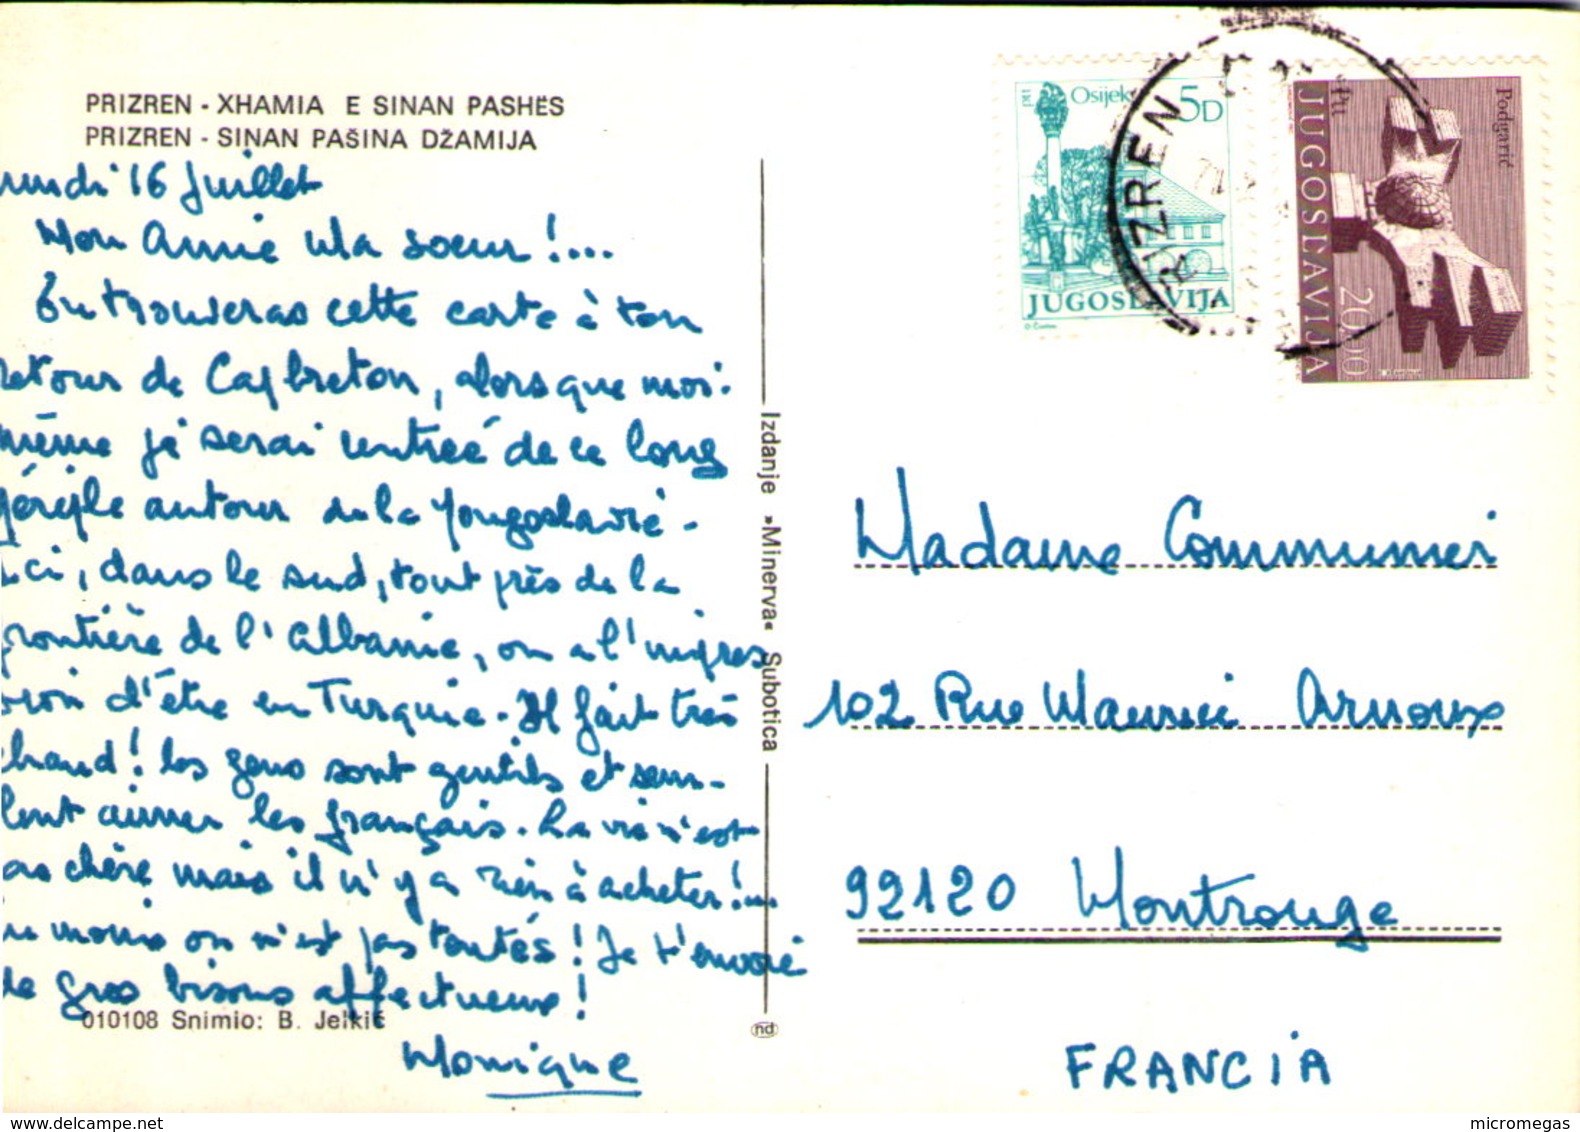 PRIZREN - XHAMIA E SINAN PASHËS
PRIZREN - SINAN PAŠINA DŽAMIJA
undi 16 Juillet
Mon Annie Ma soeur !...
Tu trouveras cette carte à ton
retour de Capbreton, alors que moi-
même je serai rentrée de ce long
périple autour de la Yougoslavie -
ici, dans le sud, tout près de la
frontière de l'Albanie, on a l'impres
sion d'être en Turquie. Il fait très
chaud ! les gens sont gentils et sem-
blent aimer les français. La vie n'est
pas chère mais il n'y a rien à acheter !...
au moins on n'est pas tentés ! Je t'envoie
de gros bisous affectueux !
Monique
010108 Snimio: B. Jelkić
Izdanje »Minerva« Subotica
nd
ptt Osijek 5D
JUGOSLAVIJA
PRIZREN
Ptt Podgarić
JUGOSLAVIJA
20.00
Madame Communier
102 Rue Maurice Arnoux
92120 Montrouge
FRANCIA
www.delcampe.net
micromegas